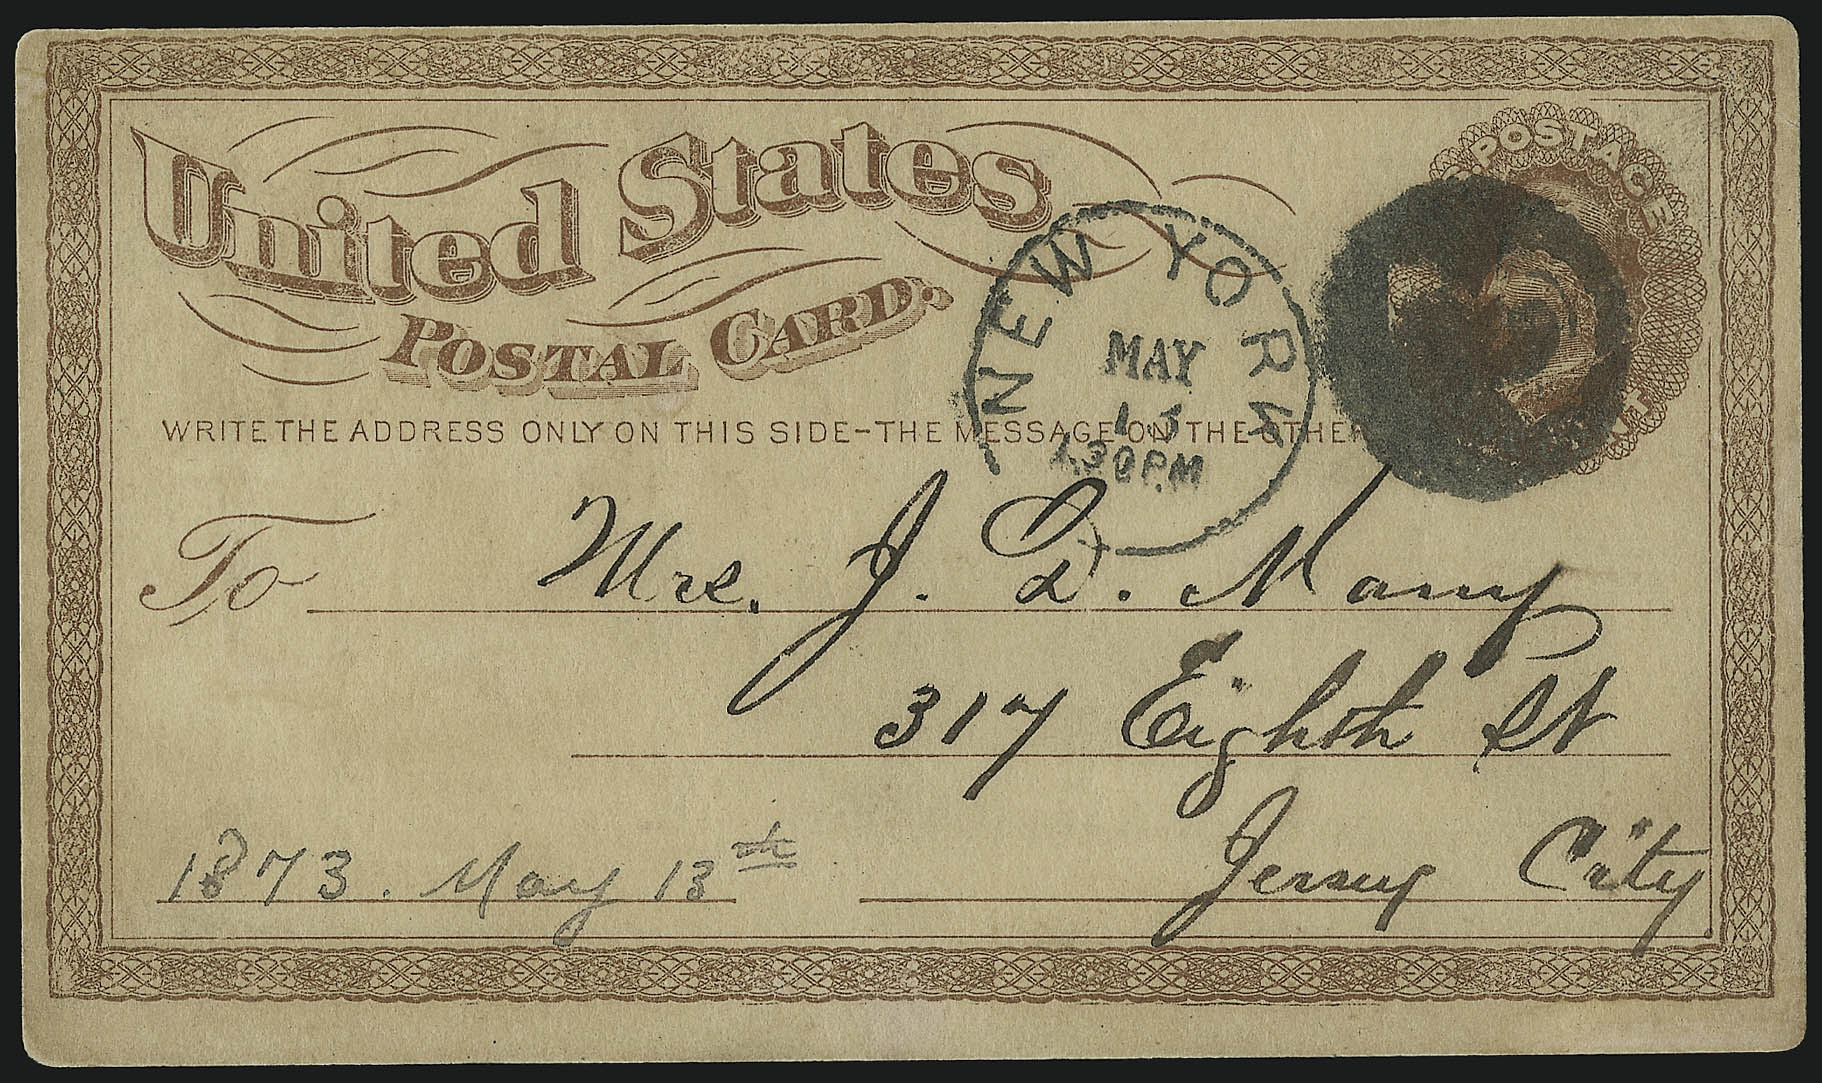 United States
POSTAL CARD.
POSTAGE
NEW YORK
MAY
13
1.30 P.M
WRITE THE ADDRESS ONLY ON THIS SIDE–THE MESSAGE ON THE OTHER
To Mrs. J. D. Many
317 Eighth St
Jersey City
1873. May 13th